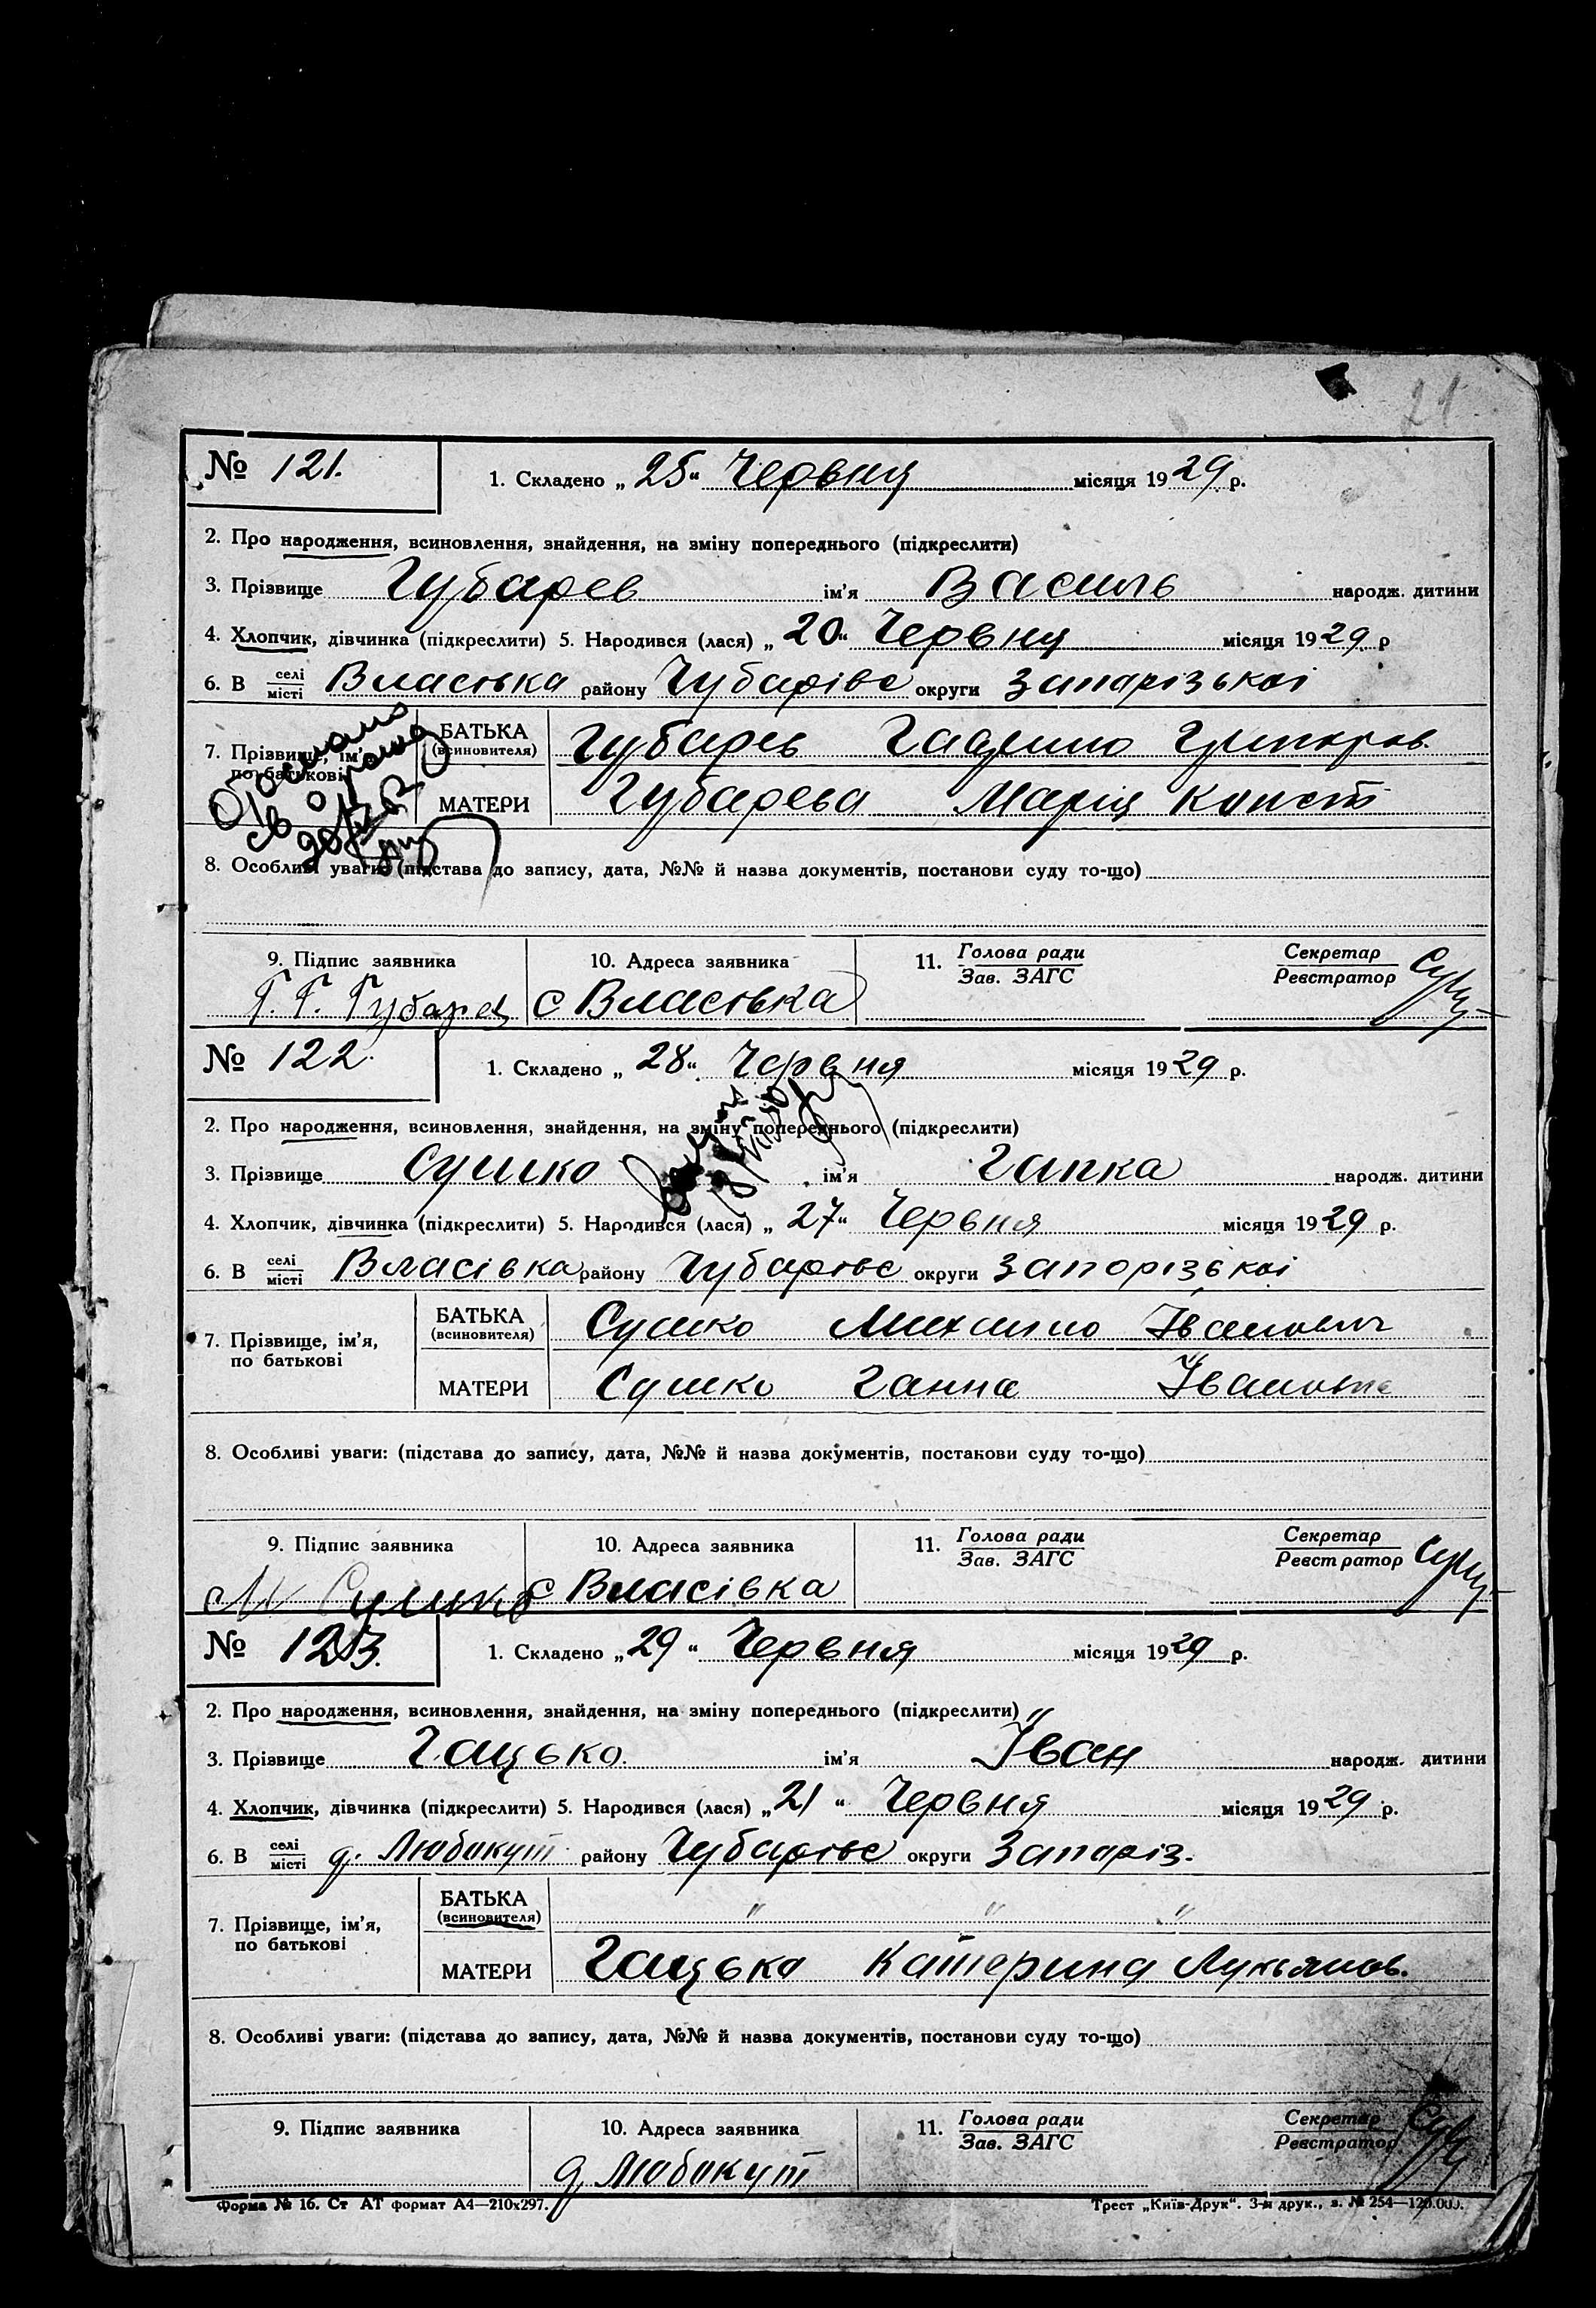 21
№ 121.
1. Складено „ 25 “ Червня місяця 1929 р.
2. Про народження, всиновлення, знайдення, на зміну попереднього (підкреслити)
3. Прізвище Губарев ім’я Василь народж. дитини
4. Хлопчик, дівчинка (підкреслити) 5. Народився (лася) „ 20 “ Червня місяця 1929 р
6. В селі / місті Власівка району Чубарівс округи Запарізької
7. Прізвище, ім’я по батькові
БАТЬКА (всиновителя) Губарев Гаврило Григоров.
МАТЕРИ Губарева Марія Конст
8. Особливі уваги: (підстава до запису, дата, №№ й назва документів, постанови суду то-що)
9. Підпис заявника 10. Адреса заявника 11. Голова ради / Зав. ЗАГС Секретар / Реєстратор
Г. Г. Губарев с Власівка
№ 122.
1. Складено „ 28 “ Червня місяця 1929 р.
2. Про народження, всиновлення, знайдення, на зміну попереднього (підкреслити)
3. Прізвище Сушко ім’я Гапка народж. дитини
4. Хлопчик, дівчинка (підкреслити) 5. Народився (лася) „ 27 “ Червня місяця 1929 р.
6. В селі / місті Власівка району Чубарівс округи Запорізької
7. Прізвище, ім’я, по батькові
БАТЬКА (всиновителя) Сушко Михайло Іванович
МАТЕРИ Сушко Ганна Івановна
8. Особливі уваги: (підстава до запису, дата, №№ й назва документів, постанови суду то-що)
9. Підпис заявника 10. Адреса заявника 11. Голова ради / Зав. ЗАГС Секретар / Реєстратор
М Сушко с Власівка
№ 123.
1. Складено „ 29 “ Червня місяця 1929 р.
2. Про народження, всиновлення, знайдення, на зміну попереднього (підкреслити)
3. Прізвище Гацько ім’я Іван народж. дитини
4. Хлопчик, дівчинка (підкреслити) 5. Народився (лася) „ 21 “ Червня місяця 1929 р.
6. В селі / місті д. Любокут району Чубарівс округи Запаріз.
7. Прізвище, ім’я, по батькові
БАТЬКА (всиновителя) " " "
МАТЕРИ Гацька Катерина Лукьянов.
8. Особливі уваги: (підстава до запису, дата, №№ й назва документів, постанови суду то-що)
9. Підпис заявника 10. Адреса заявника 11. Голова ради / Зав. ЗАГС Секретар / Реєстратор
д Любокут
Форма № 16. Ст АТ формат А4—210х297. Трест „Київ-Друк“. 3-я друк., з. № 254—120.000.